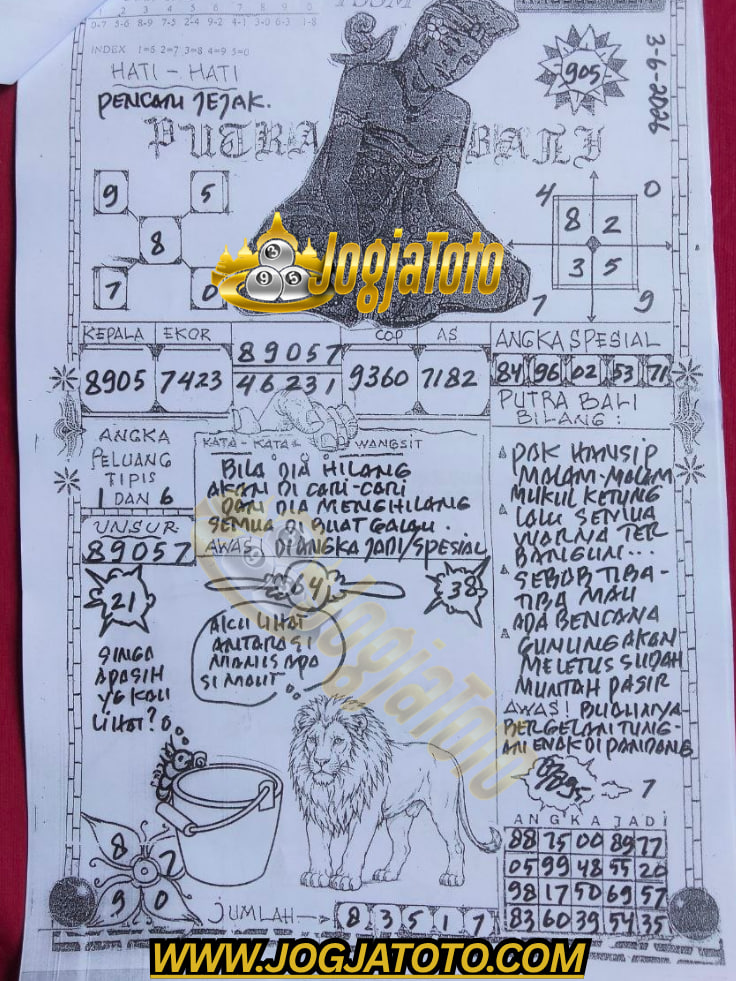 0-7 5-6 8-9 7-5 2-4 9-2 4-1 3-0 6-3 1-8
INDEX 1=6 2=7 3=8 4=9 5=0
HATI - HATI
PENCARI JEJAK.
PUTRA BALI
905
3-6-2026
9 5
8
7 0
4 0
8 2
3 5
7 9
JogjaToto
KEPALA EKOR COP AS
8905 7423 89057 9360 7182
46231
ANGKA SPESIAL
84 96 02 53 71
ANGKA
PELUANG
TIPIS
1 DAN 6
UNSUR
89057
KATA - KATA WANGSIT
BILA DIA HILANG
AKAN DI CARI-CARI
DAN DIA MENGHILANG
SEMUA DI BUAT GALAU.
AWAS. DIANGKA JADI/SPESIAL
PUTRA BALI
BILANG:
PAK HANSIP
MALAM-MALAM
MUKUL KETUNG
LALU SEMUA
WARNA TER
BANGUN...
SEBAB TIBA-
TIBA MAU
ADA BENCANA
GUNUNG AKAN
MELETUS SUDAH
MUNTAH PASIR
AWAS! BUALINYA
BERGELANTUNG-
AN ENAK DI PANDANG
21
64
38
SINGA
APASIH
YG KAU
LIHAT?
AKU LIHAT
ANTARA SI
MANIS APA
SI MAUT
JogjaToto
7
ANGKA JADI
88 75 00 89 77
05 99 48 55 20
98 17 50 69 57
83 60 39 54 35
8 7
9 0
JUMLAH 8 3 5 1 7
WWW.JOGJATOTO.COM